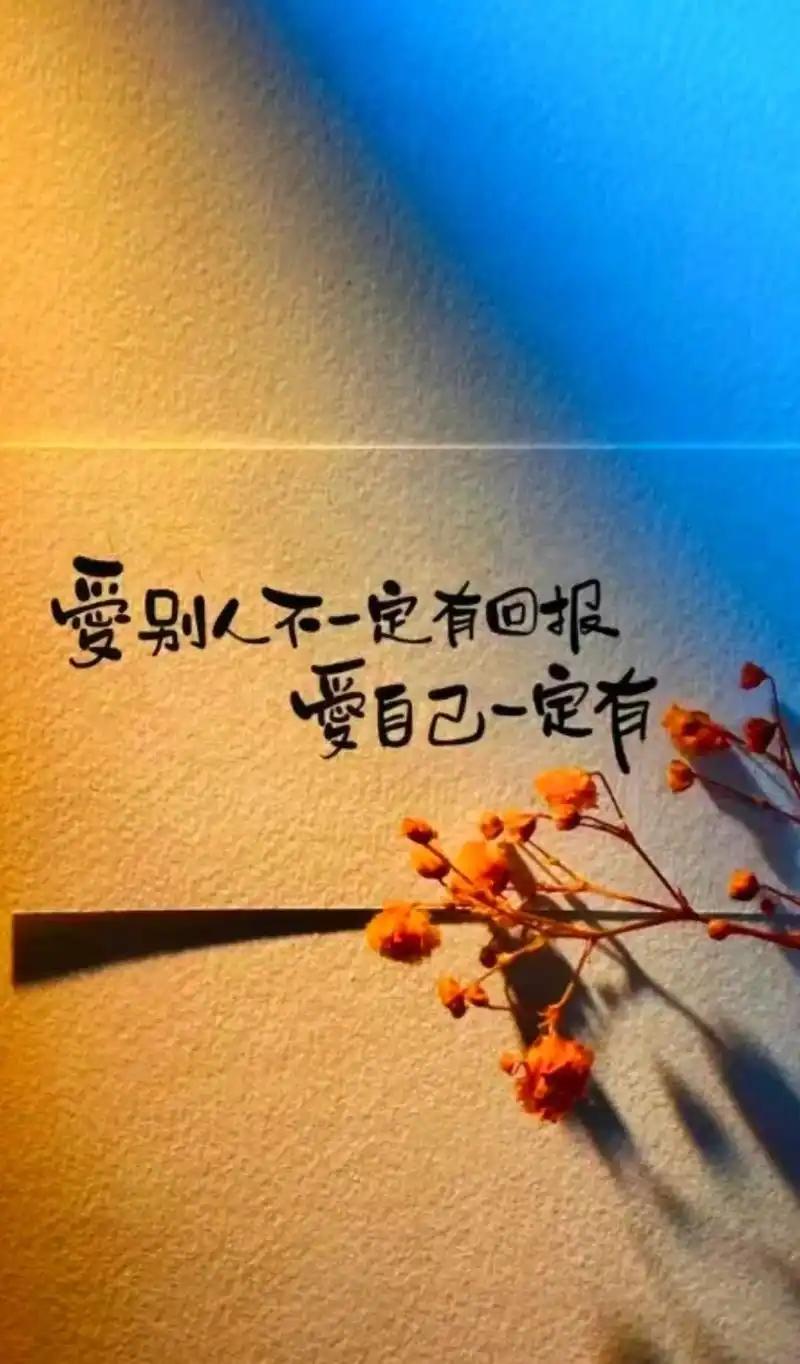 愛别人不一定有回报
愛自己一定有